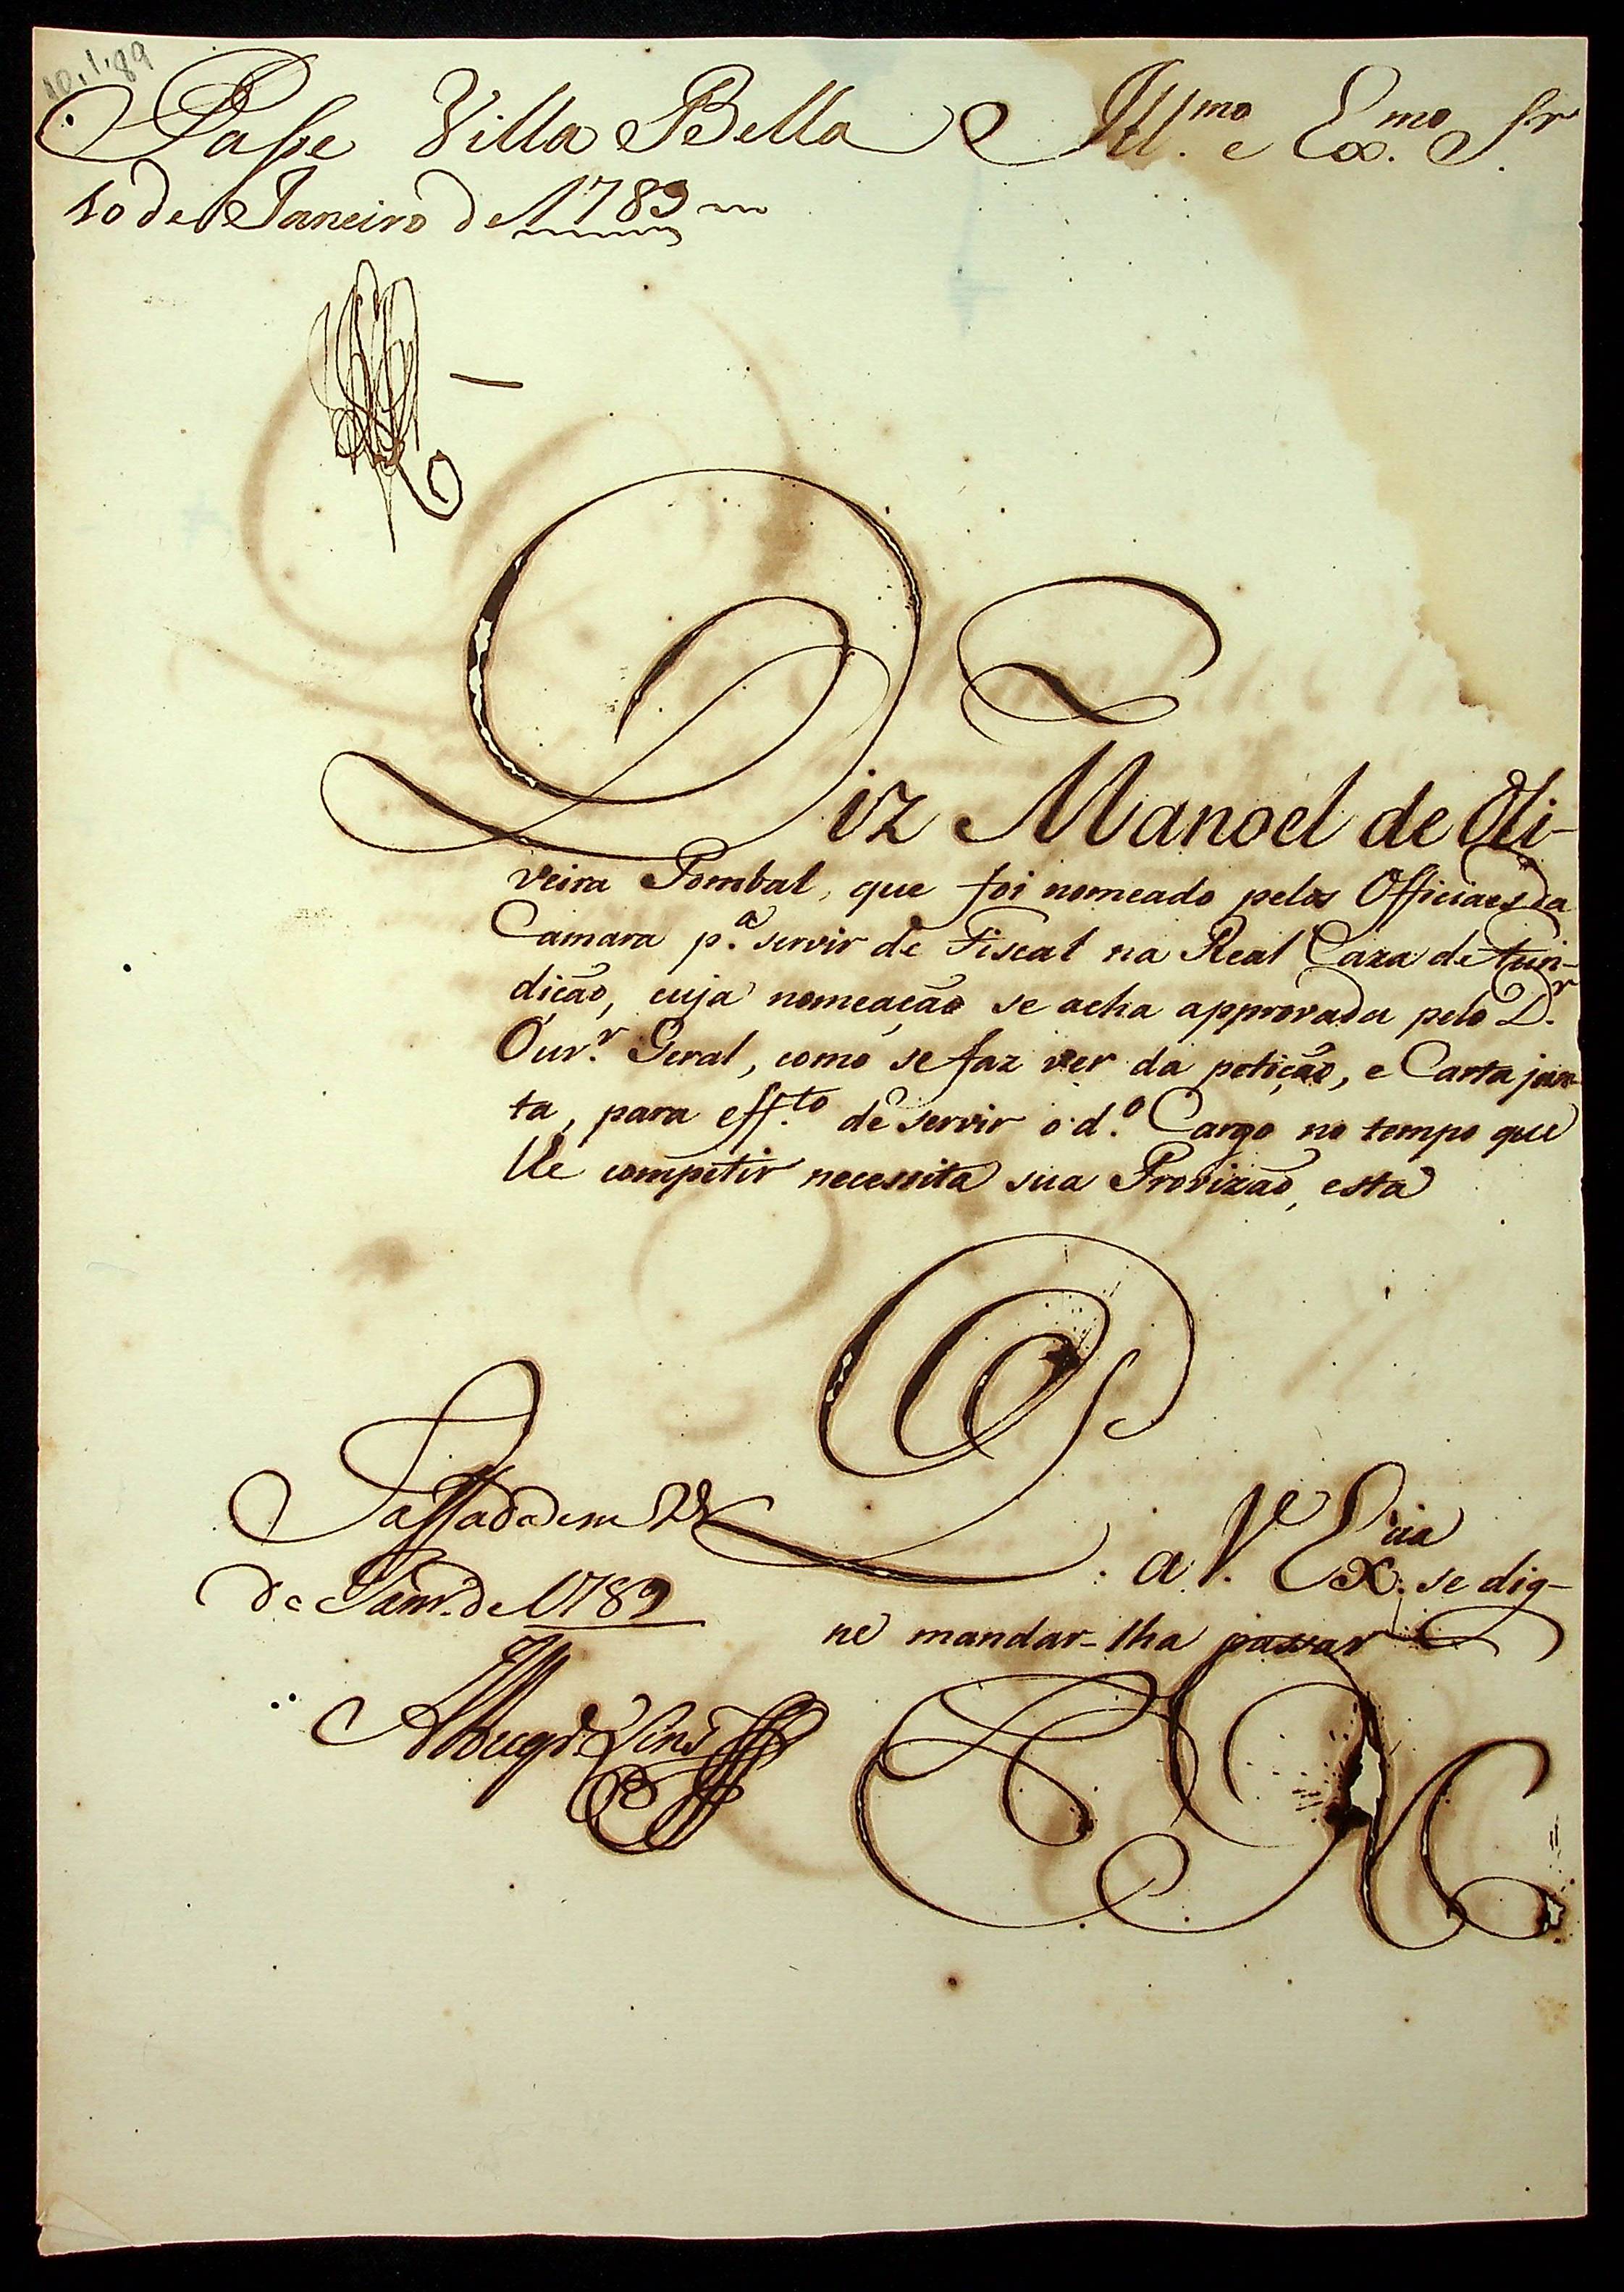 10.1.89
Passe Villa Bella
10 de Janeiro de 1789
Ill.mo e Ex.mo Sr.
Diz Manoel de Oli-
veira Pombal, que foi nomeado pelos Officiaes da
Camara p.a servir de Fiscal na Real Caza de Fun-
dição, cuja nomeação se acha approvada pelo D.r
Ouv.r Geral, como se faz ver da petição, e Carta jun-
ta, para eff.to de servir o d.o Cargo no tempo que
lhe competir necessita sua Provizão, esta
P. a V. Ex.cia se dig-
ne mandar-lha passar
Passada em
de Janr.o de 1789
E R M